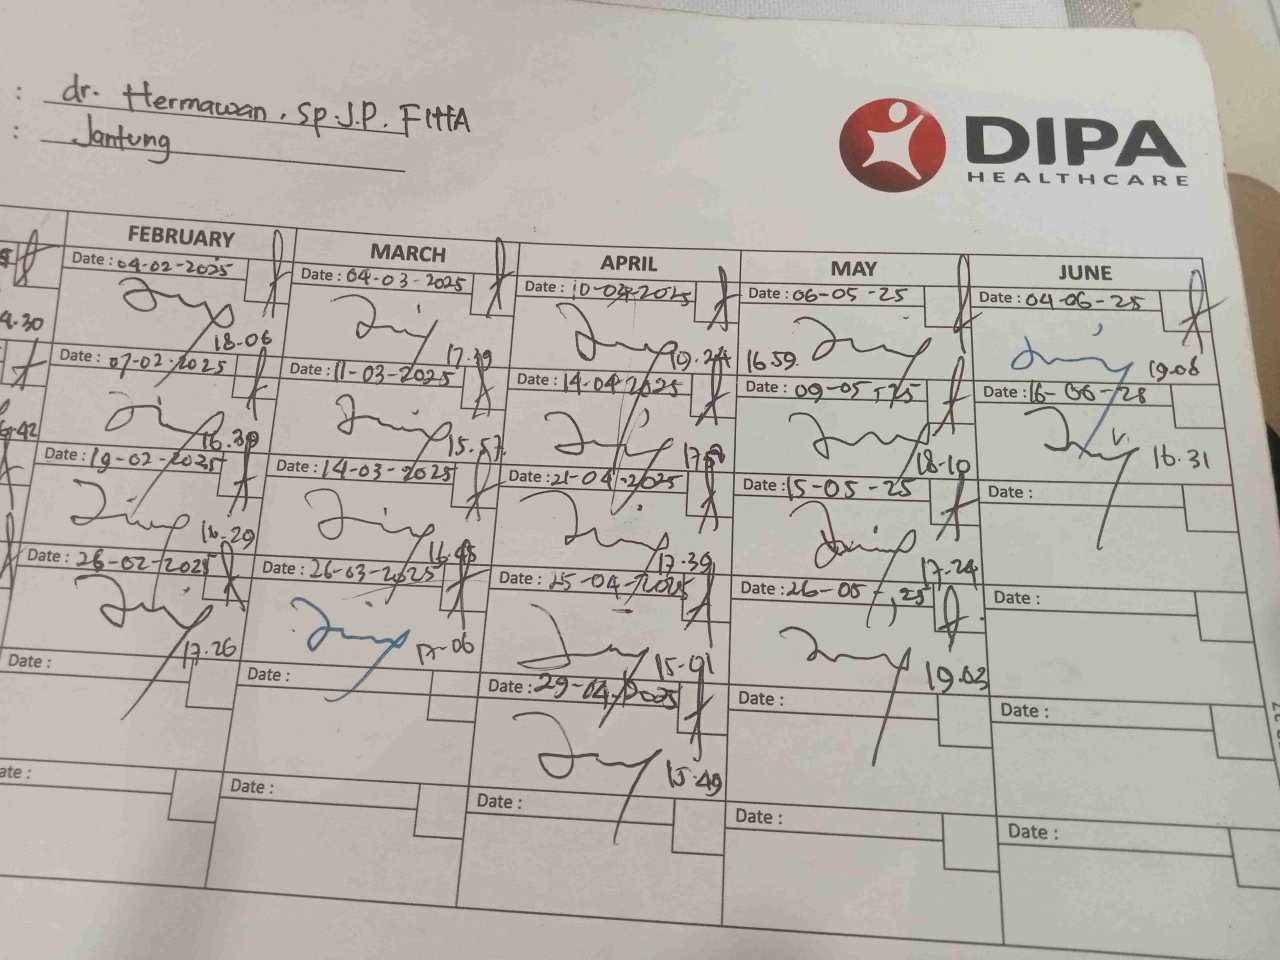 : dr. Hermawan. Sp.J.P. FIHA
: Jantung
DIPA
HEALTHCARE
FEBRUARY MARCH APRIL MAY JUNE
Date : 04-02-2025 Date : 04-03-2025 Date : 10-04-2025 Date : 06-05-25 Date : 04-06-25
4.30 18.06 17.39 16.59 19.08
Date : 07-02-2025 Date : 11-03-2025 Date : 14-04-2025 Date : 09-05-25 Date : 16-06-25
6.42 16.30 15.57 18.10 16.31
Date : 19-02-2025 Date : 14-03-2025 Date : 21-04-2025 Date : 15-05-25 Date :
16.29 16.45 17.39 17.24
Date : 26-02-2025 Date : 26-03-2025 Date : 25-04-2025 Date : 26-05-25 Date :
17.26 17-06 15-01 19.03
Date : Date : Date : 29-04-2025 Date : Date :
15.49
ate : Date : Date : Date : Date :